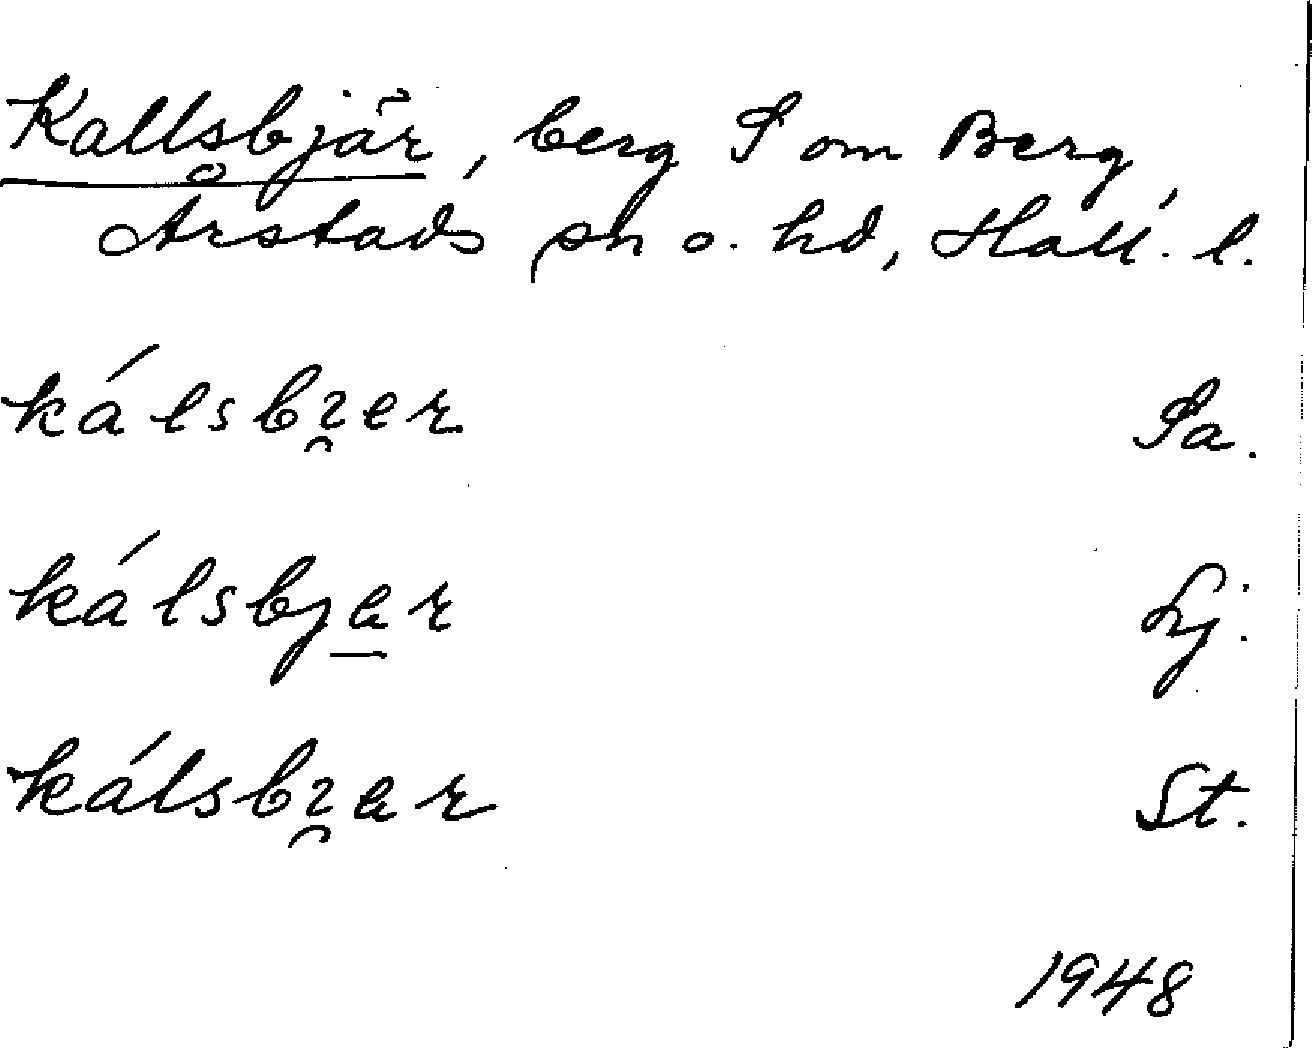 Kallsbjär, berg S om Berg,
Årstads sn o. hd, Hall. l.
kálsbɿer Sa.
kálsbjar Lj.
kálsbɿar St.
1948